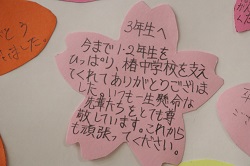 3年生へ
今まで1・2年生を
ひっぱり、椿中学校を支え
てくれてありがとうございま
した。いつも一生懸命な
先輩たちをとても尊
敬しています。これから
も頑張ってください。
とう
ました。